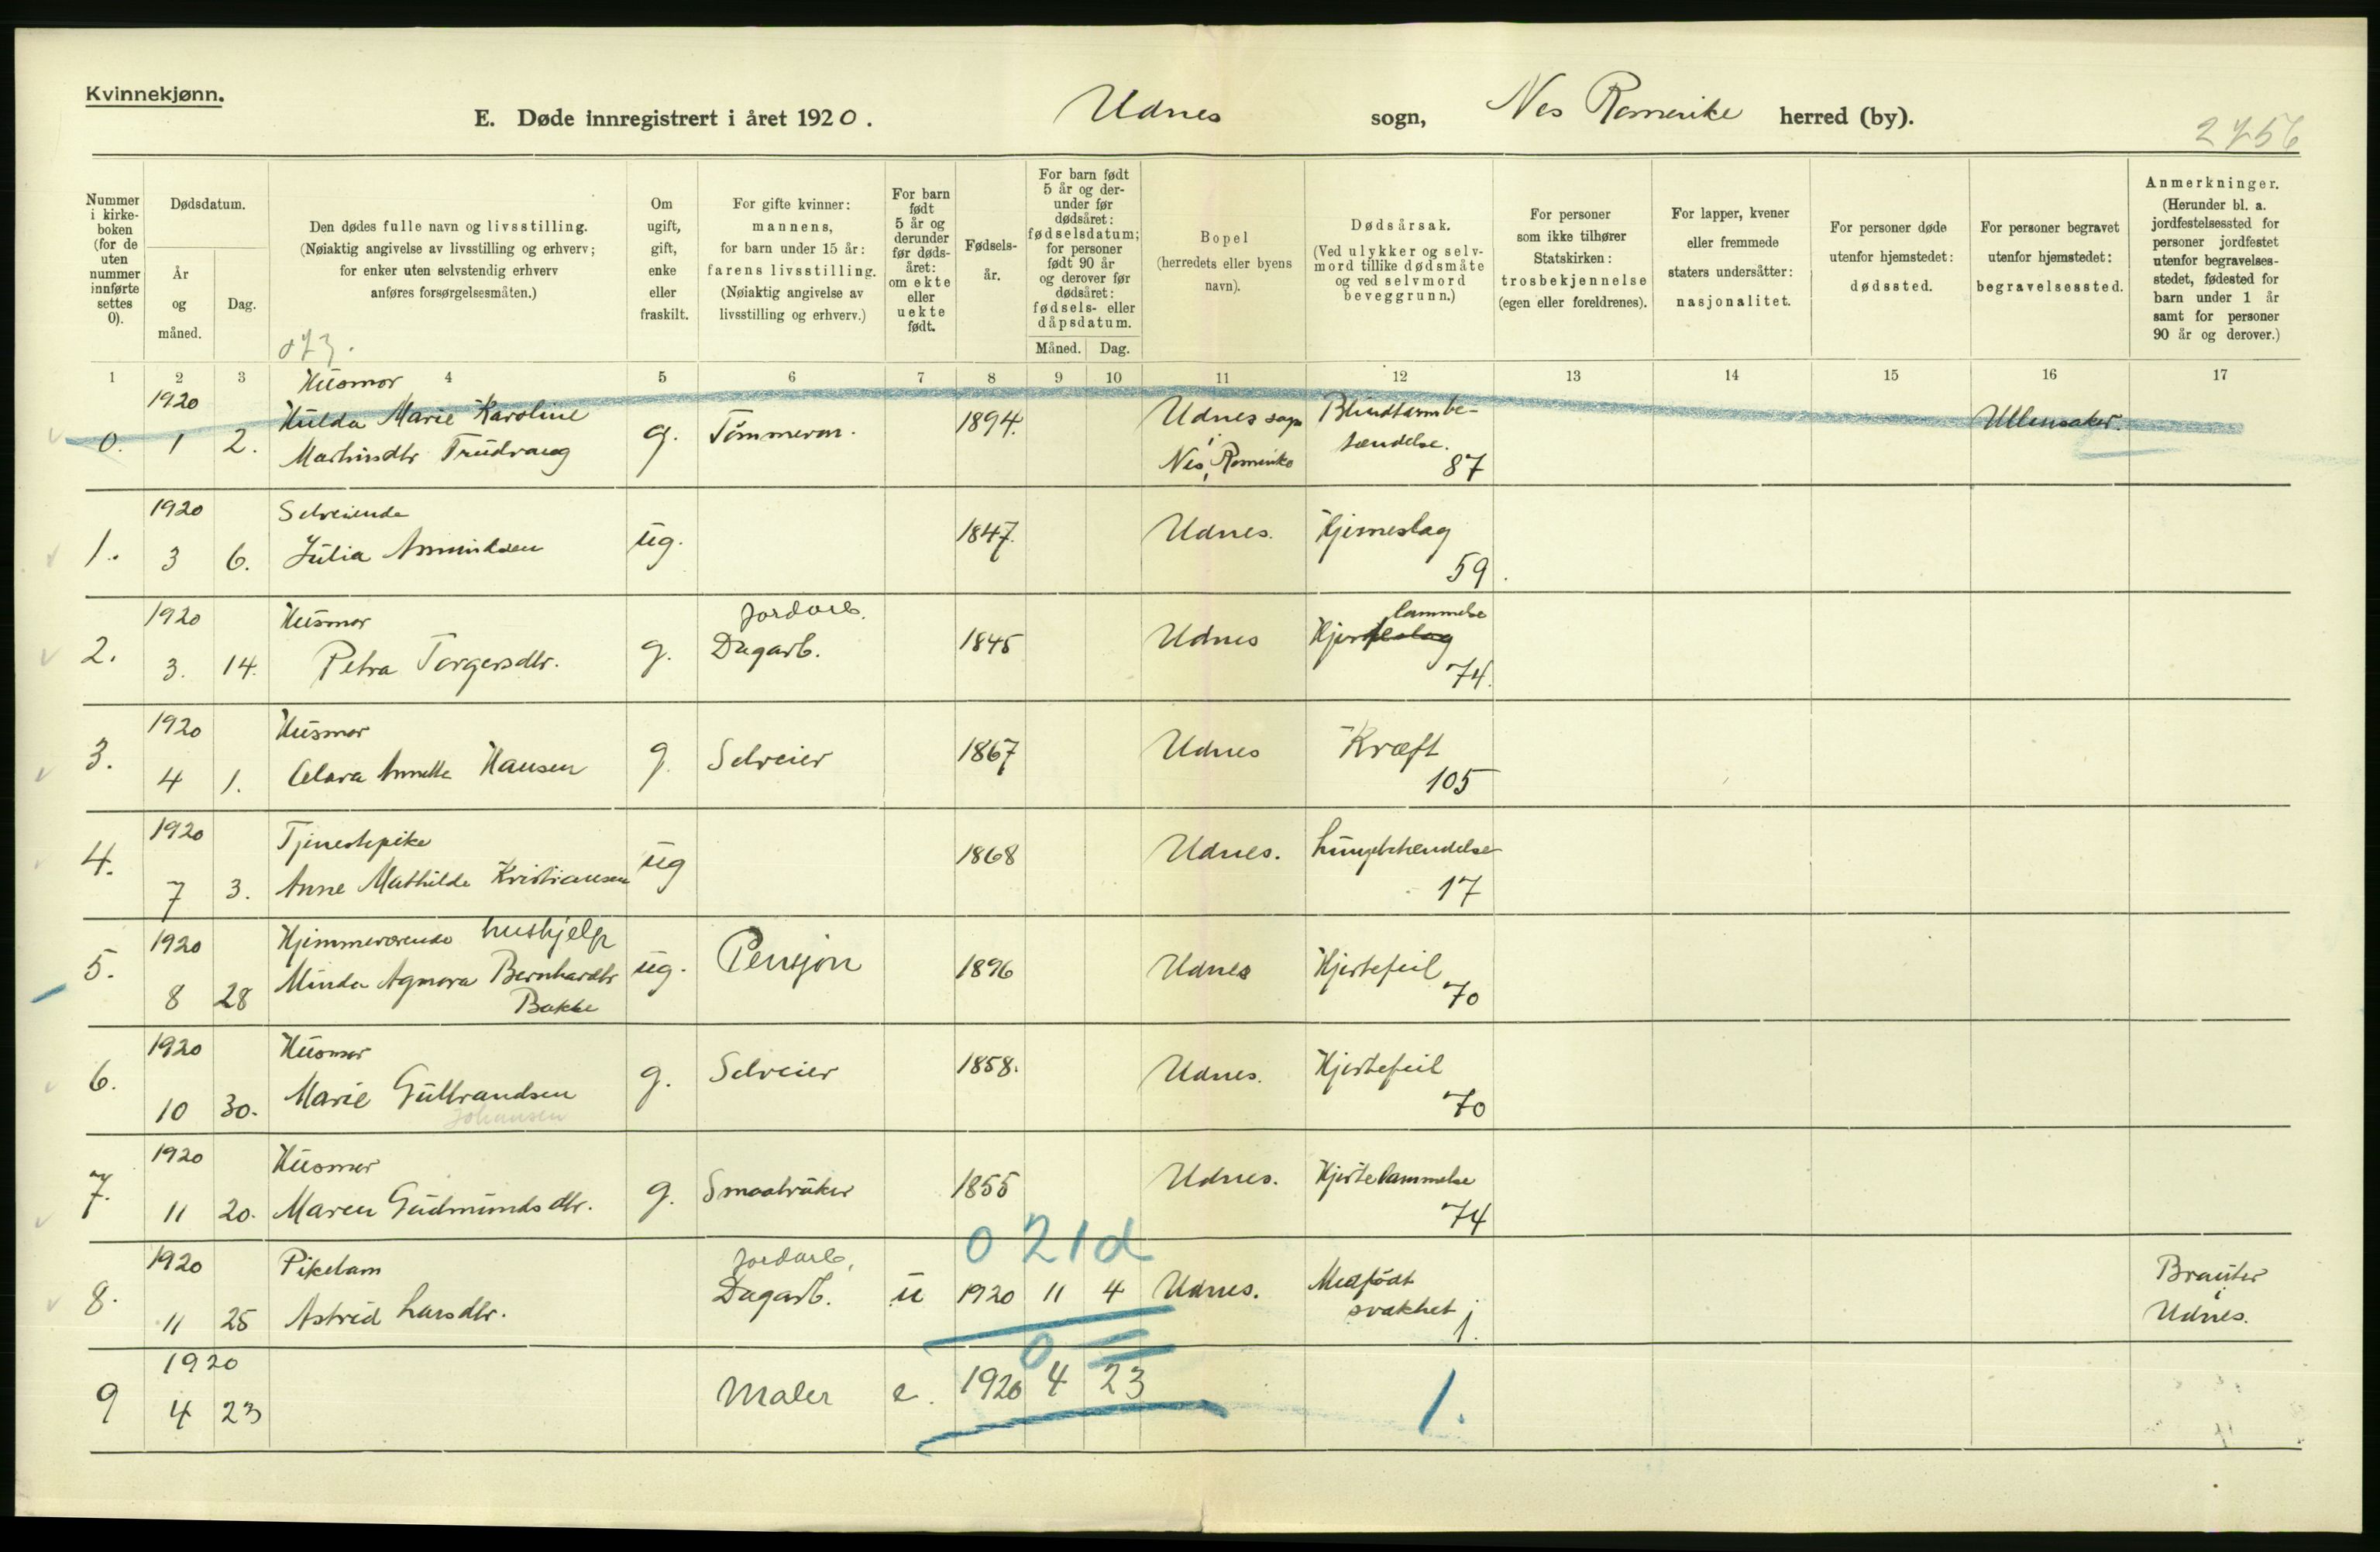 Kvinnekjønn.
E. Døde innregistrert i året 1920. Udnes sogn, Nes Romerike herred (by).
2756
Nummer i kirkeboken (for de uten nummer innførte settes 0).
Dødsdatum.
År og måned.
Dag.
Den dødes fulle navn og livsstilling.
(Nøiaktig angivelse av livsstilling og erhverv;
for enker uten selvstendig erhverv
anføres forsørgelsesmåten.)
073.
Om ugift, gift, enke eller fraskilt.
For gifte kvinner:
mannens,
for barn under 15 år:
farens livsstilling.
(Nøiaktig angivelse av
livsstilling og erhverv.)
For barn født 5 år og derunder før dødsåret: om ekte eller uekte født.
Fødselsår.
For barn født 5 år og derunder før dødsåret: fødselsdatum; for personer født 90 år og derover før dødsåret: fødsels- eller dåpsdatum.
Måned. Dag.
Bopel
(herredets eller byens
navn).
Dødsårsak.
(Ved ulykker og selvmord tillike dødsmåte og ved selvmord beveggrunn.)
For personer
som ikke tilhører
Statskirken:
trosbekjennelse
(egen eller foreldrenes).
For lapper, kvener
eller fremmede
staters undersåtter:
nasjonalitet.
For personer døde
utenfor hjemstedet:
dødssted.
For personer begravet
utenfor hjemstedet:
begravelsessted.
Anmerkninger.
(Herunder bl. a.
jordfestelsessted for
personer jordfestet
utenfor begravelsesstedet, fødested for
barn under 1 år
samt for personer
90 år og derover.)
1 2 3 4 5 6 7 8 9 10 11 12 13 14 15 16 17
1920 Husmor
0. 1 2. Hulda Marie Karoline g. Tömmerm. 1894. Udnes sogn Blindtarmbe- Ullensaker.
Martinsdtr Trudvang i Nes, Romerike tændelse.
87
1920 Selveiende
1. 3 6. Julia Amundsen ug. 1847. Udnes. Hjerneslag
59.
1920 Husmor Jordarb. lammelse
2. 3. 14. Petra Torgersdtr. g. Dagarb. 1845 Udnes Hjerteslag
74.
1920 Husmor
3. 4 1. Clara Annette Hansen g. Selveier 1867 Udnes Kræft
105
1920 Tjenestepike
4. 7 3. Anne Mathilde Kristiansen ug 1868 Udnes. Lungebetændelse
17
1920 Hjemmeværende hushjelp
5. 8 28 Minda Agnora Bernhardtr ug. Pensjon 1896 Udnes Hjertefeil
Bakke 70
1920 Husmor
6. 10 30. Marie Gulbrandsen g. Selveier 1858. Udnes. Hjertefeil
Johansen 70
1920 Husmor
7. 11 20. Maren Gudmundsdtr. g. Smaabruker 1855 Udnes. Hjertelammelse
74
0 21d
1920 Pikebarn Jordarb.
8. 11 25 Astrid Larsdtr. Dagarb. u 1920 11 4 Udnes. Medfødt Brauter
svakhet i
1. Udnes.
0
1920
9 4 23 Maler e. 1920 4 23 1.